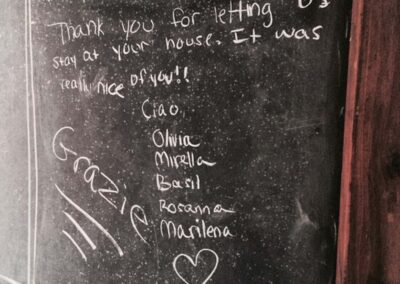 Thank you for letting Us
stay at your house. It was
really nice of you!!
Ciao
Olivia
Mirella
Basil
Rosanna
Marilena
Grazie